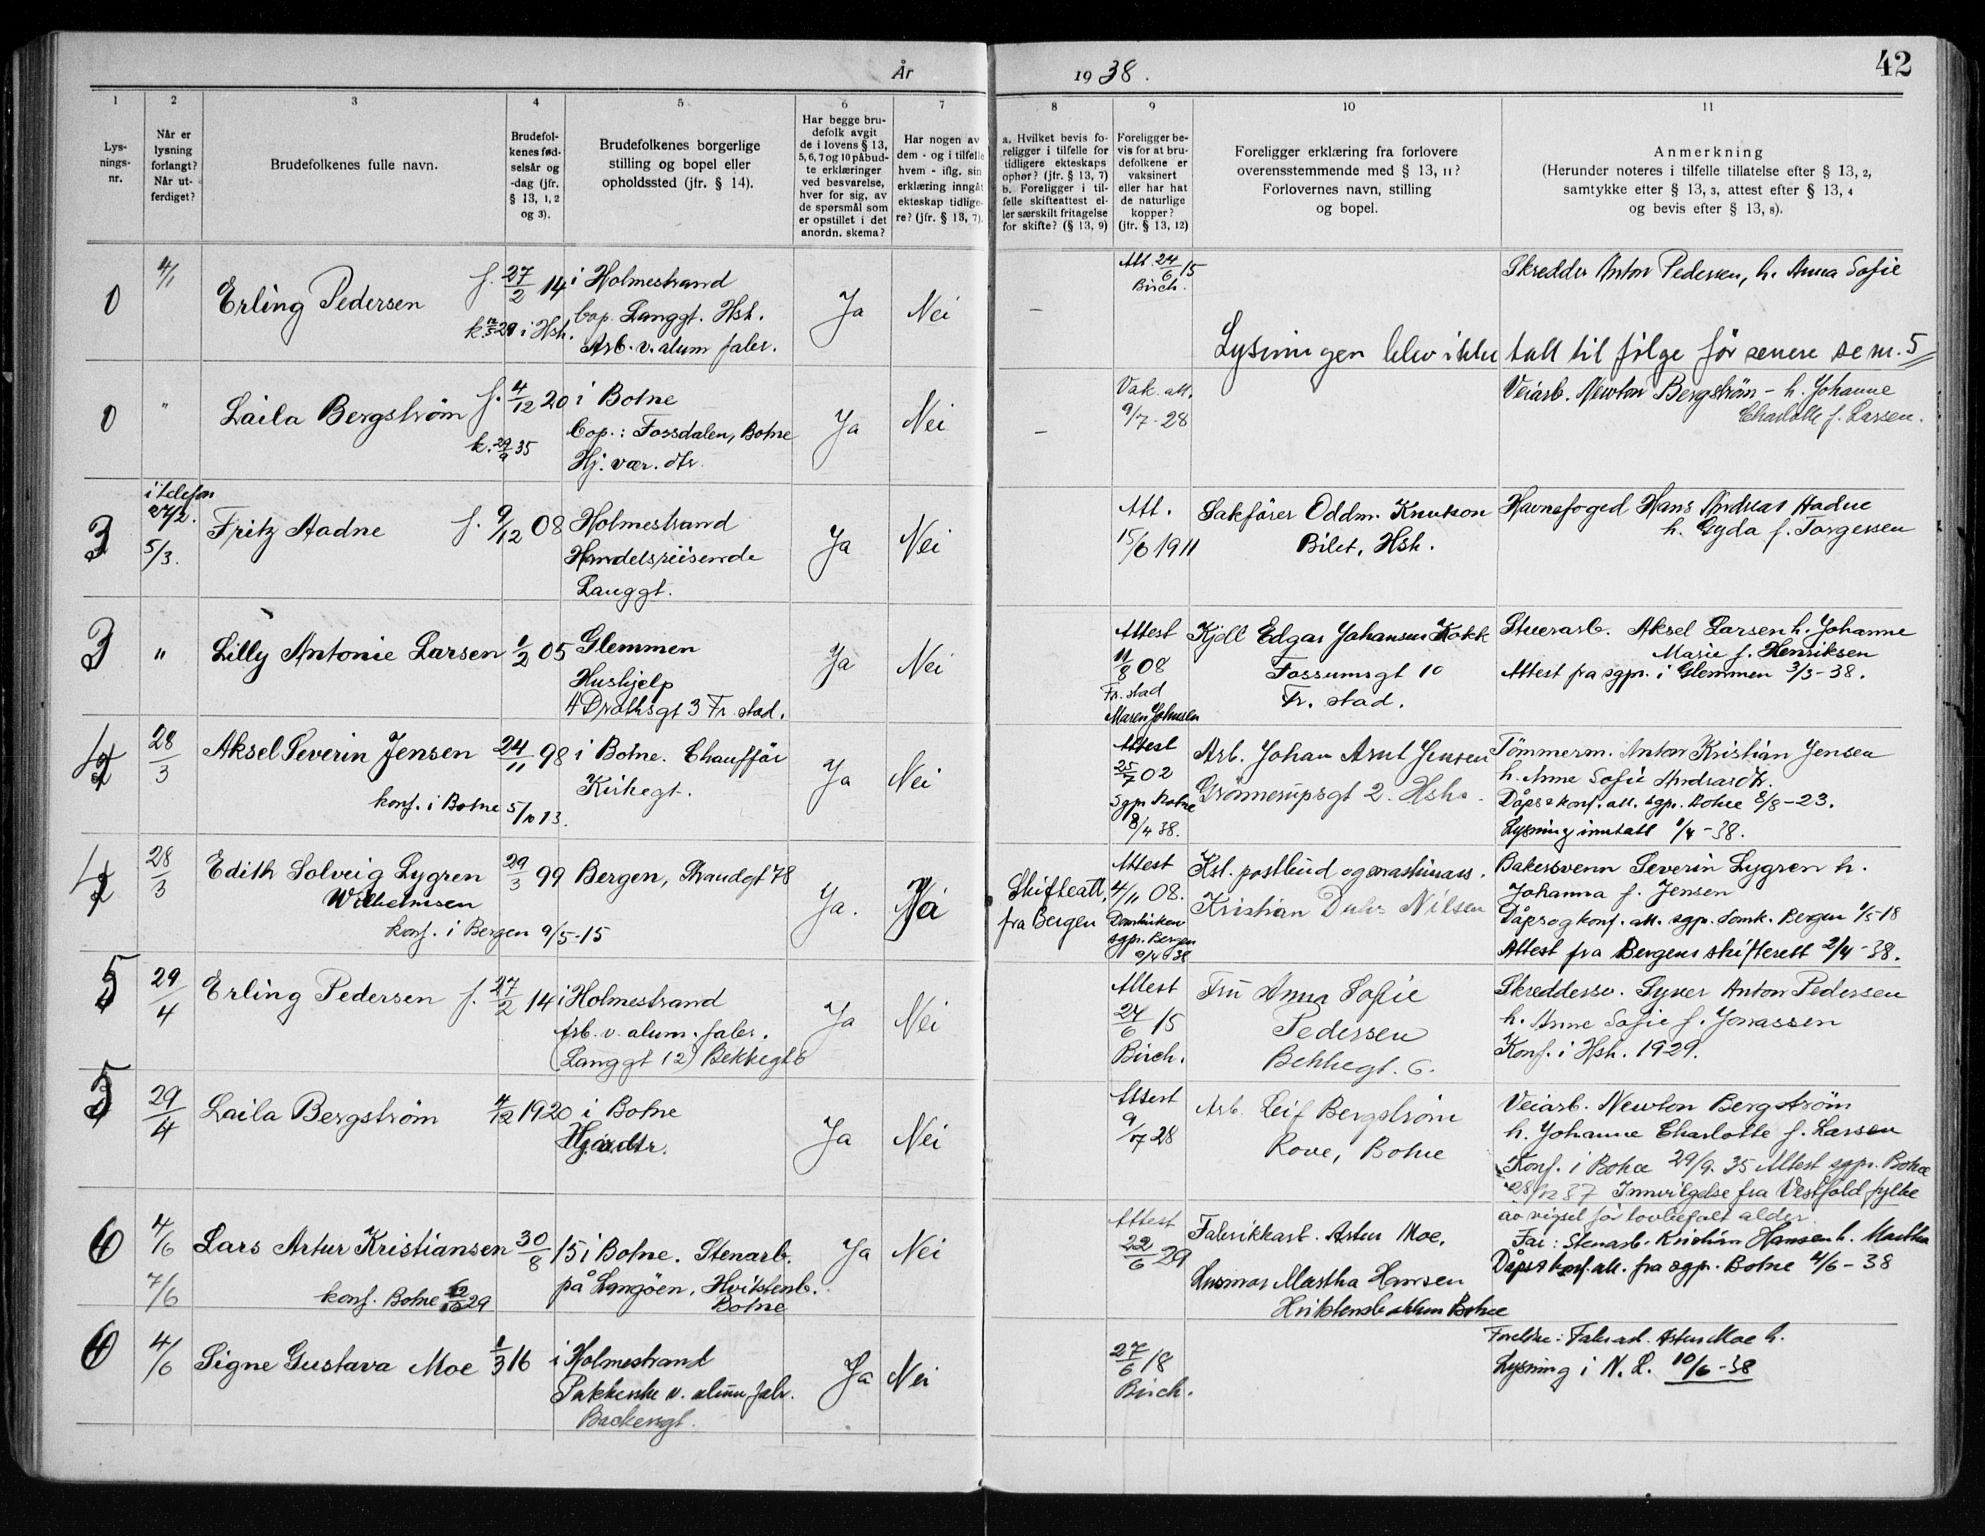 År
1938.
42
1
2
3
4
5
6
7
8
9
10
11
Lys-
nings-
nr.
Når er
lysning
forlangt?
Når ut-
ferdiget?
Brudefolkenes fulle navn.
Brudefol-
kenes fød-
selsår og
-dag (jfr.
§ 13, 1, 2
og 3).
Brudefolkenes borgerlige
stilling og bopel eller
opholdssted (jfr. § 14).
Har begge bru-
defolk avgit
de i lovens § 13,
5, 6, 7 og 10 påbud-
te erklæringer
ved besvarelse,
hver for sig, av
de spørsmål som
er opstillet i det
anordn. skema?
Har nogen av
dem - og i tilfelle
hvem - iflg. sin
erklæring inngåt
ekteskap tidlige-
re? (jfr. § 13, 7).
a. Hvilket bevis fo-
religger i tilfelle for
tidligere ekteskaps
ophør? (jfr. § 13, 7)
b. Foreligger i til-
felle skifteattest el-
ler særskilt fritagelse
for skifte? (§ 13, 9)
Foreligger be-
vis for at bru-
defolkene er
vaksinert
eller har hat
de naturlige
kopper?
(jfr. § 13, 12)
Foreligger erklæring fra forlovere
overensstemmende med § 13, 11?
Forlovernes navn, stilling
og bopel.
Anmerkning
(Herunder noteres i tilfelle tillatelse efter § 13, 2,
samtykke efter § 13, 3, attest efter § 13, 4
og bevis efter § 13, 8).
0
4/1
Erling Pedersen
f. 27/2 14
k. 29 i Hsh.
i Holmestrand
bop. Langgt. Hsh.
Arb. v. alum fabr.
Ja
Nei
–
Att. 24/6 15
Birch.
Skredder Anton Pedersen, h. Anna Sofie
Lysningen blev ikke tatt til følge før senere se nr. 5
0
"
Laila Bergstrøm
f. 4/12 20
k. 29/9 35
i Botne
bop.: Fossdalen, Botne
Hj. vær. dtr.
Ja
Nei
–
Vak. att.
9/7-28
Veiarb. Newton Bergstrøm – h. Johanne
Charlotte f. Larsen.
3
i telefon
27/2.
5/3.
Fritz Aadne
f. 9/12 08
Holmestrand
Handelsreisende
Langgt.
Ja
Nei
Att.
15/6 1911
Sakfører Oddm. Knutson
Bilet, Hsh.
Havnefoged Hans Andreas Aadne
h. Gyda f. Torgersen
3
"
Lilly Antonie Larsen
1/2 05
Glemmen
Hushjelp
Fr. stad.
Ja
Nei
Attest
11/8 08
Fr. stad
Maren Johnsen
Kjell Edgar Johansen Kokk
Fossumsgt 10
Fr. stad.
Stuerarb. Aksel Larsen h. Johanne
Marie f. Henriksen
Attest fra sgpr. i Glemmen 3/3-38.
4
28/3
Aksel Severin Jensen
konf. i Botne 5/10 13.
24/11 98
i Botne. Chauffør
Kirkegt.
Ja
Nei
Attest
25/7 02
sgpr Botne
8/4 38.
Arb. Johan Arnt Jensen
Grønnerupsgt 2. Hsh.
Tømmerm. Anton Kristian Jensen
h. Anne Sofie Andreasdtr.
Dåps & konf. att. sgpr. Botne 8/8-23.
Lysning inntatt 1/4-38.
4
28/3
Edith Solveig Lygren
Wilhelmsen
konf. i Bergen 9/5-15
29/3 99
Bergen, Strandgt 78
Ja.
Nei
Skifteatt.
fra Bergen
Attest
4/11 08.
Domkirken
sgpr. Bergen
2/4 38
Kst. postbud og maskinass.
Kristian Nilsen
Bakersvenn Severin Lygren h.
Johanna f. Jensen
Dåps og konf. att. sgpr. Domk. Bergen 1/5-18
Attest fra Bergens skifterett 2/4-38.
5
29/4
Erling Pedersen
f. 27/2 14
i Holmestrand
Arb. v. alum. fabr.
(Langgt 12) Bekkegt 6
Ja
Nei
Attest
24/6 15
Birch.
Fru Anna Sofie
Pedersen
Bekkegt. 6.
Skreddersv. Syver Anton Pedersen
h. Anne Sofie f. Jonassen
Konf. i Hsh. 1929.
5
29/4
Laila Bergstrøm
4/12 1920
i Botne
Hj.v.dtr.
Ja
Nei
Attest
9/7 28
Arb. Leif Bergstrøm
Rove, Botne
Veiarb. Newton Bergstrøm
h. Johanne Charlotte f. Larsen
Konf. i Botne 29/9.35 Attest sgpr. Botne
28/12 37 Innvilgelse fra Vestfold fylke
av vigsel før lovbefalt alder.
6
4/6
7/6
Lars Artur Kristiansen
konf. Botne 29
30/8 15
i Botne. Stenarb.
på Langøen, Hvitstenb.
Botne
Ja
Nei
Attest
22/6 29
Fabrikkarb. Artur Moe.
Husmor Martha Hansen
Botne
Far: Stenarb. Kristian Hansen h. Martha
Dåps & konf. att. fra sgpr. Botne 4/6-38
6
4/6
Signe Gustava Moe
1/3 16
i Holmestrand
Pakkerske v. alum fabr.
Backergt.
Ja
Nei
27/6 18
Birch.
Foreldre: Fabr.arb. Artur Moe h.
Lysning i N. L. 10/6-38